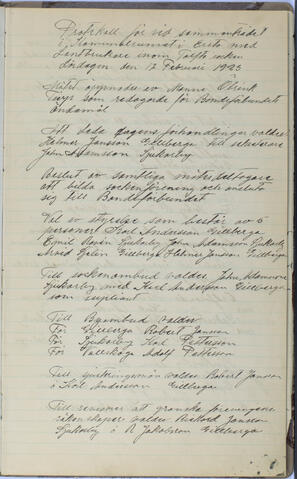 Protokoll för vid sammanträdet
i Kommunalrummet i Ersta med
Landtbrukare inom Tolfta socken
Lördagen den 17 Februari 1923
Mötet öppnades av Manne
som redogorde för Bondeförbundets
ändamål
Att leda dagens förhandlingar valdes
Helmer Jansson Gillberga till sekreterare
John Adamsson Sjukarby
Beslut av samtliga mötesdeltagare
att bilda sockenförening och ansluta
sig till Bondeförbundet
Val av styrelse som består av 5
personer Karl Andersson Gillberga
Emil Sjukarby John Adamsson Sjukarby
Arvid Gillberga Helmer Jansson Gillberga
Till sockenombud valdes John Adamsson
Sjukarby med Karl Andersson Gillberga
som supleant
Till Byombud valdes
För Gillberga Robert Jansson
För Sjukarby Karl Pettersson
För Adolf Pettersson
Till valdes Robert Jansson
o Karl Andersson Gillberga
Till revisorer att granska föreningens
räkenskaper valdes Rickard Jansson
Sjukarby o R Jakobsson Gillberga